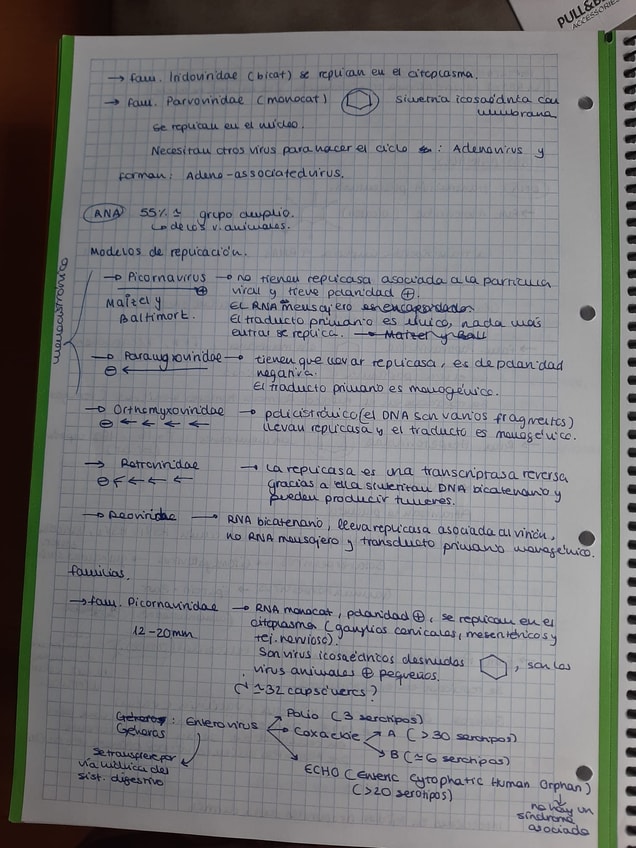 PULL&B
ACCESSORIES
→ fam. Iridoviridae (bicat) se replican en el citoplasma.
→ fam. Parvoviridae (monocat) simetría icosaédrita con
membrana
se replican en el núcleo.
Necesitan otros virus para hacer el ciclo : Adenovirus y
forman: Adeno-associatedvirus.
ARNA 55% ≃ grupo amplio.
↳ de los v. animales.
Modelos de replicación.
monocistrónico
→ Picornavirus → no tienen replicasa asociada a la partícula
⊕ viral y tiene polaridad ⊕.
Maïzel y EL RNA mensajero
Baltimort. El traducto primario es único, nada más
entrar se replica.
→ Paramyxoviridae → tienen que llevar replicasa, es de polaridad
⊖ ← negativa.
El traducto primario es monogénico.
→ Orthomyxoviridae → policistrónico (el DNA son varios fragmentos)
⊖ ← ← ← ← llevan replicasa y el traducto es monogénico.
→ Retroviridae → La replicasa es una transcriptasa reversa
⊖ ← ← ← ← gracias a ella sintentan DNA bicatenario y
pueden producir tumores.
→ Reoviridae → RNA bicatenario, lleva replicasa asociada al virión,
no RNA mensajero y transducto primario monogénico.
familias.
→ fam. Picornaviridae → RNA monocat, polaridad ⊕, se replican en el
12-20mm citoplasma (ganglios cervicales, mesentéricos y
tej. nervioso).
Son virus icosaédricos desnudos , son los
virus animales ⊕ pequeños.
≃32 capsómeros?
Géneros : Enterovirus → Polio (3 serotipos)
Géneros → Coxackie → A (>30 serotipos)
→ B (≃6 serotipos)
se transfiere por
vía del
sist. digestivo
→ ECHO (Enteric Cytophatic Human Orphan)
(>20 serotipos)
no hay un
síndrome
asociado